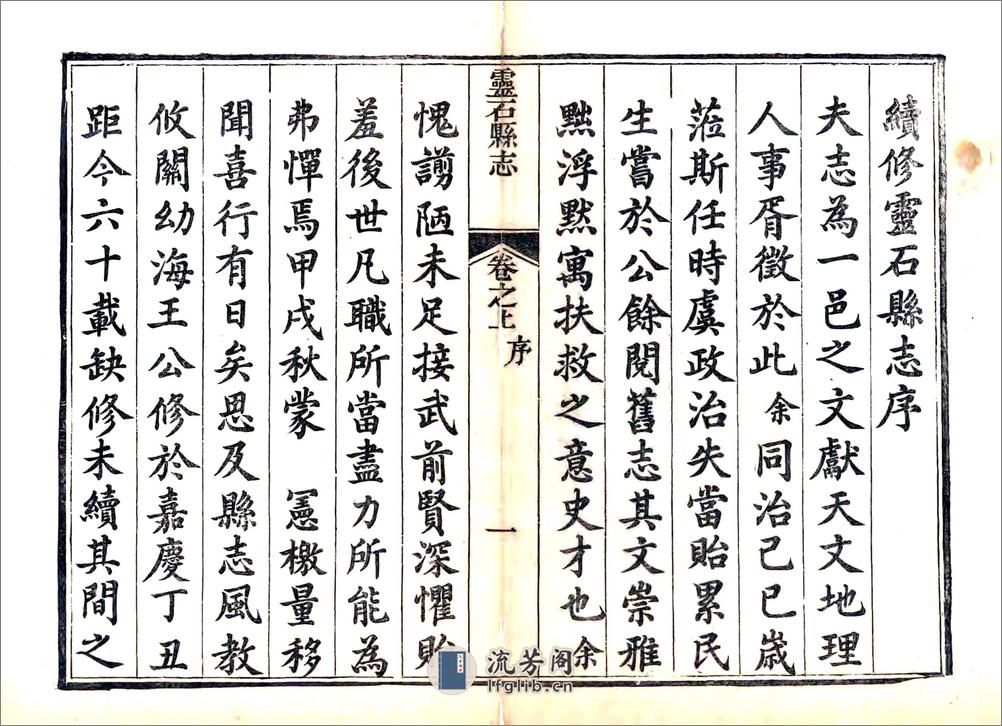 續修靈石縣志序
夫志為一邑之文獻天文地理
人事胥徵於此余同治己巳歲
蒞斯任時虞政治失當貽累民
生嘗於公餘閱舊志其文崇雅
黜浮默寓扶救之意史才也余
靈石縣志
卷之上 序
一
愧謭陋未足接武前賢深懼貽
羞後世凡職所當盡力所能為
弗憚焉甲戌秋蒙 憲檄量移
聞喜行有日矣思及縣志風教
攸關幼海王公修於嘉慶丁丑
距今六十載缺修未續其間之
流芳阁
lfglib.cn